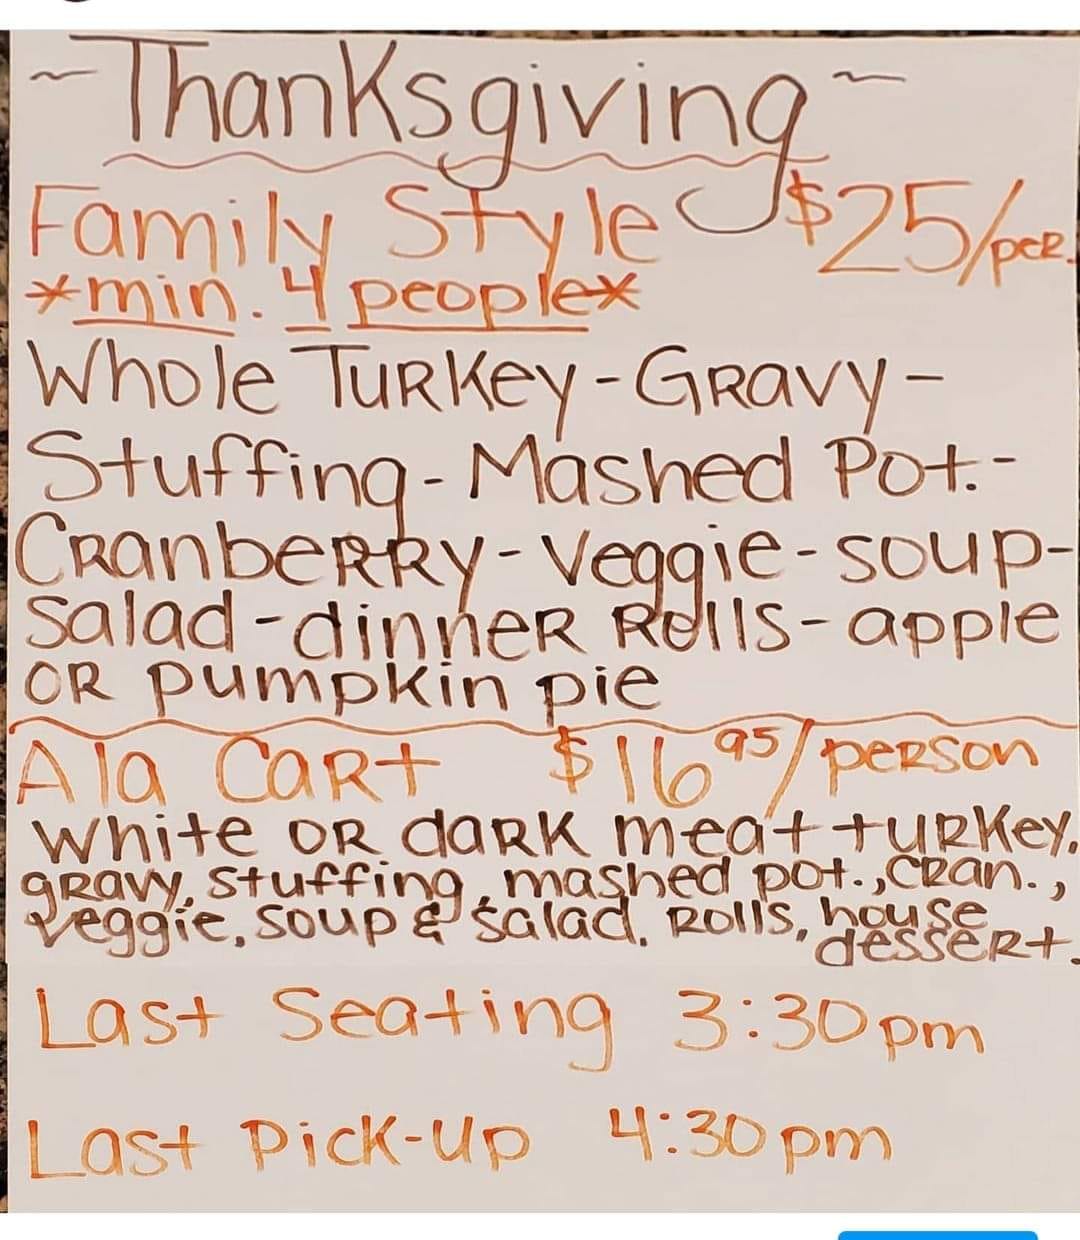 ~Thanksgiving~
Family Style $25/per.
*min. 4 people*
Whole Turkey-Gravy-
Stuffing-Mashed Pot.-
Cranberry-Veggie-soup-
salad-dinner Rolls-apple
OR pumpkin pie
Ala Cart $16 95/person
white OR dark meat turkey,
gravy, stuffing, mashed pot., cran.,
veggie, soup & salad, Rolls, house
dessert.
Last Seating 3:30pm
Last Pick-up 4:30pm